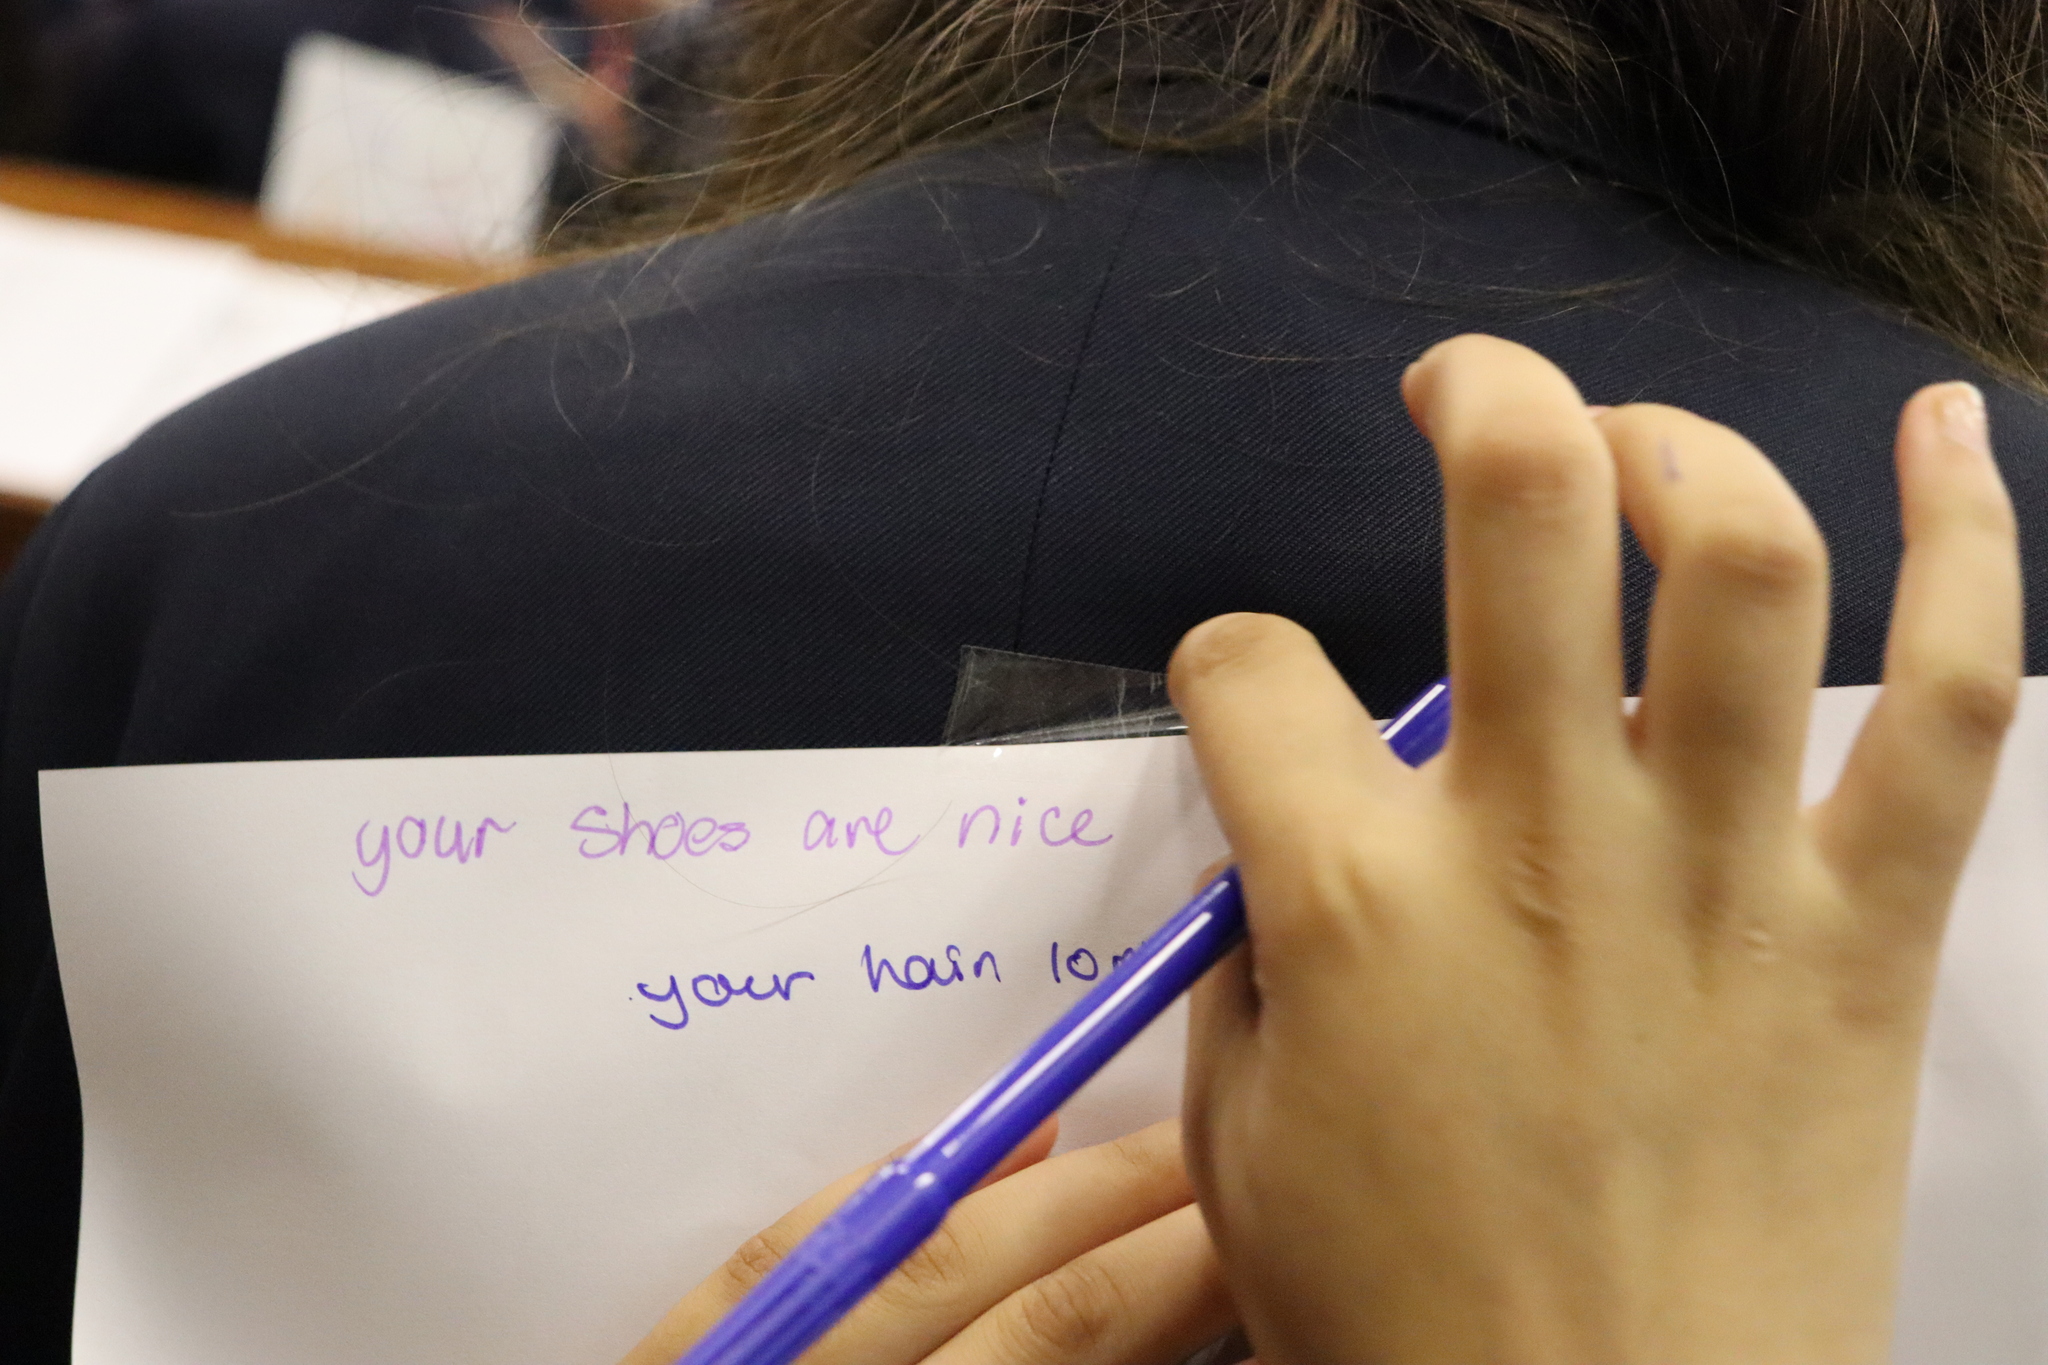 your shoes are nice
your hair